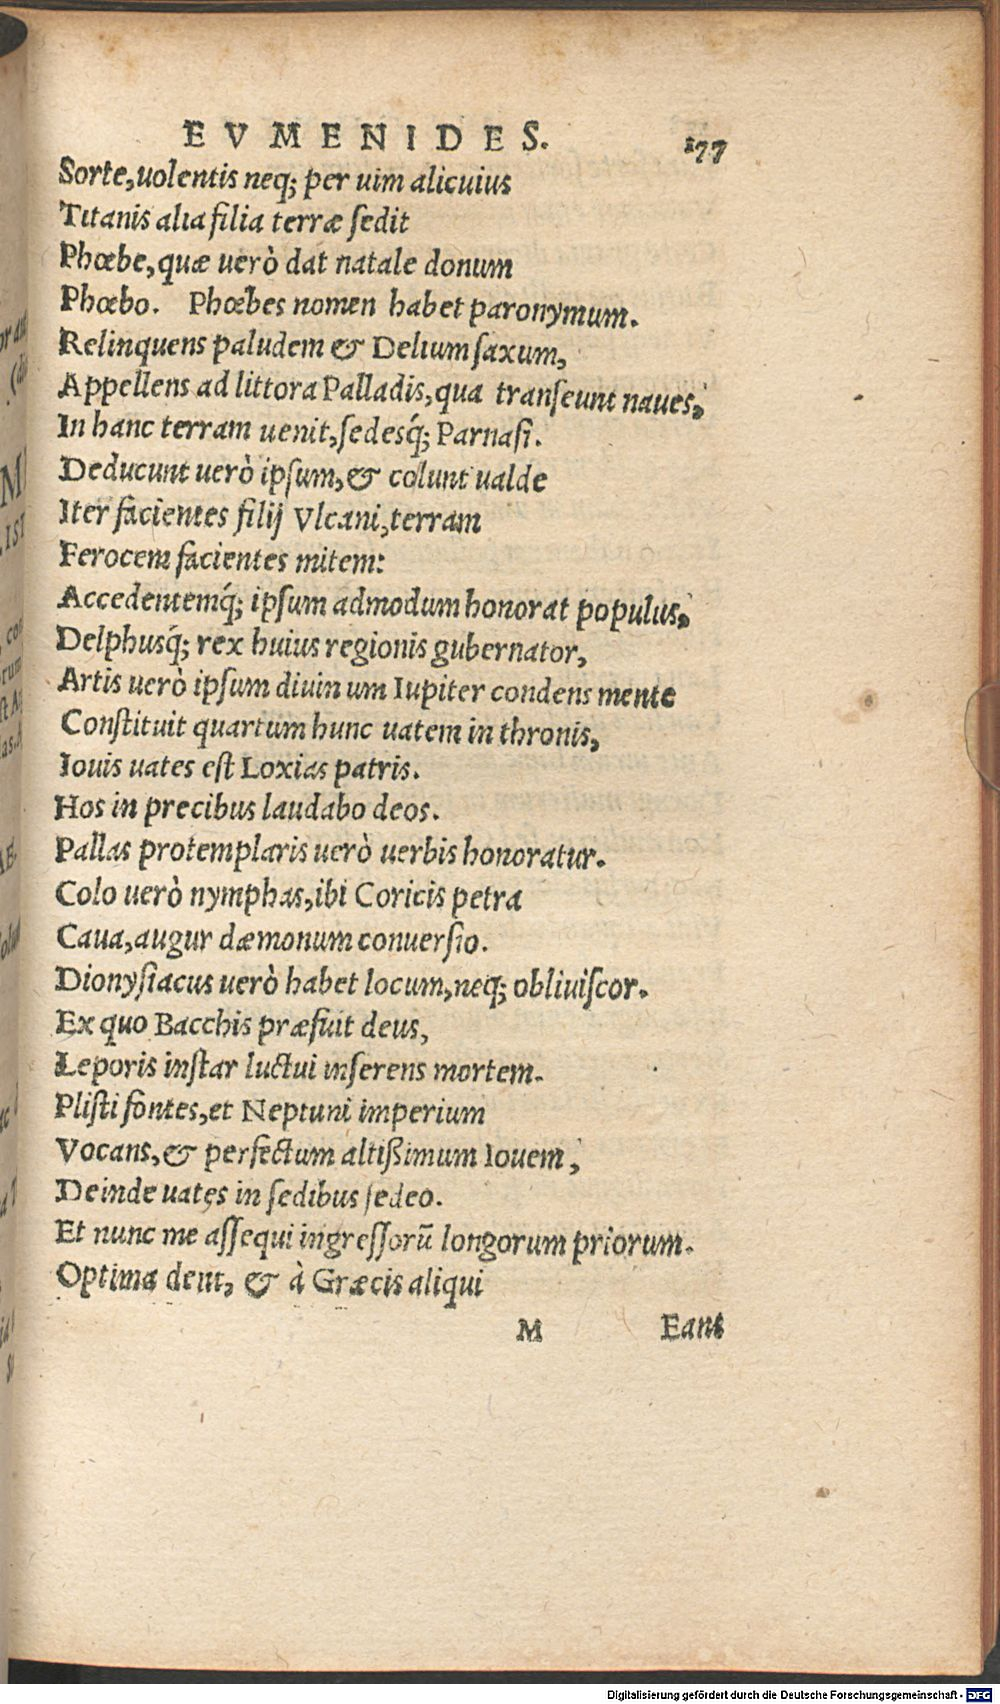 EVMENIDES. 177
Sorte, uolentis neq; per uim alicuius
Titanis alia filia terræ ſedit
Phœbe, quæ uerò dat natale donum
Phœbo. Phœbes nomen habet paronymum.
Relinquens paludem & Delium ſaxum,
Appellens ad littora Palladis, qua tranſeunt naues,
In hanc terram uenit, ſedesq́; Parnaſi.
Deducunt uerò ipſum, & colunt ualde
Iter facientes filij Vlcani, terram
Ferocem facientes mitem:
Accedentemq́; ipſum admodum honorat populus,
Delphusq́; rex huius regionis gubernator,
Artis uerò ipſum diuin um Iupiter condens mente
Conſtituit quartum hunc uatem in thronis,
Iouis uates eſt Loxias patris.
Hos in precibus laudabo deos.
Pallas protemplaris uerò uerbis honoratur.
Colo uerò nymphas, ibi Coricis petra
Caua, augur dæmonum conuerſio.
Dionyſiacus uerò habet locum, neq; obliuiſcor.
Ex quo Bacchis præfuit deus,
Leporis inſtar luctui inferens mortem.
Pliſti fontes, et Neptuni imperium
Vocans, & perfectum altißimum Iouem,
Deinde uates in ſedibus ſedeo.
Et nunc me aſſequi ingreſſorũ longorum priorum.
Optima dent, & à Græcis aliqui
M Eant
Digitalisierung gefördert durch die Deutsche Forschungsgemeinschaft - DFG